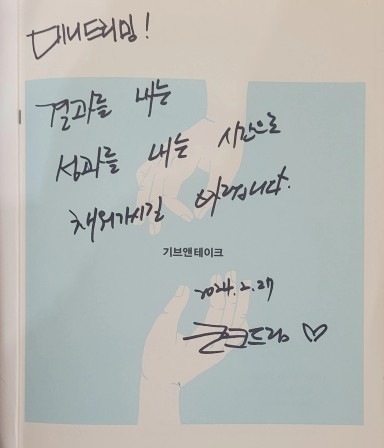 머니드리밍!
결과를 내는
성과를 내는 시간으로
채워가시길 바랍니다.
기브앤테이크
2024.2.27
드림 ♡